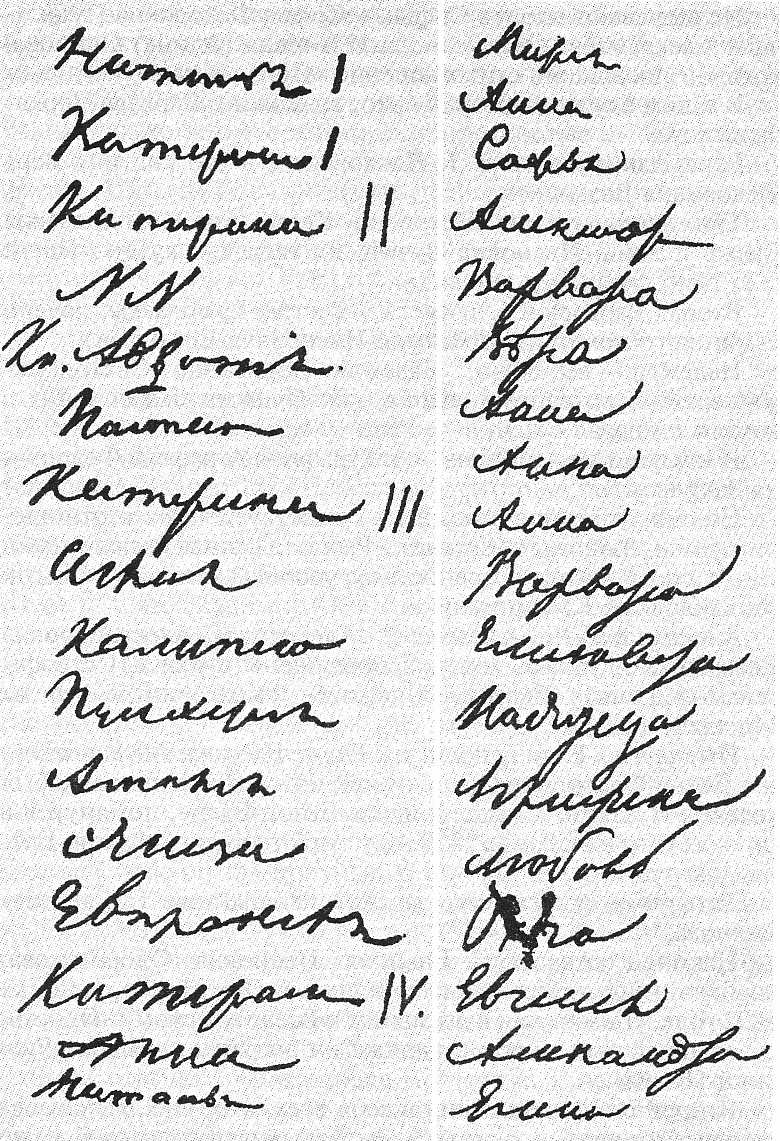 Наталья I
Катерина I
Катерина II
N N
Кн. Авдотия.
Настасья
Катерина III
Аглая
Калипсо
Пульхерия
Амалия
Элиза
Евпраксея
Катерина IV.
Анна
Наталья
Мария
Анна
Софья
Александра
Варвара
Вѣра
Анна
Анна
Анна
Варвара
Елизавета
Надежда
Аграфена
Любовь
Ольга
Евгения
Александра
Елена